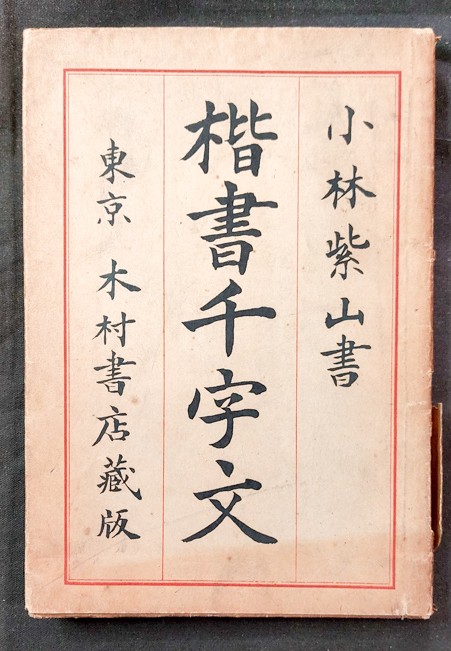 小林紫山書
楷書千字文
東京 木村書店藏版